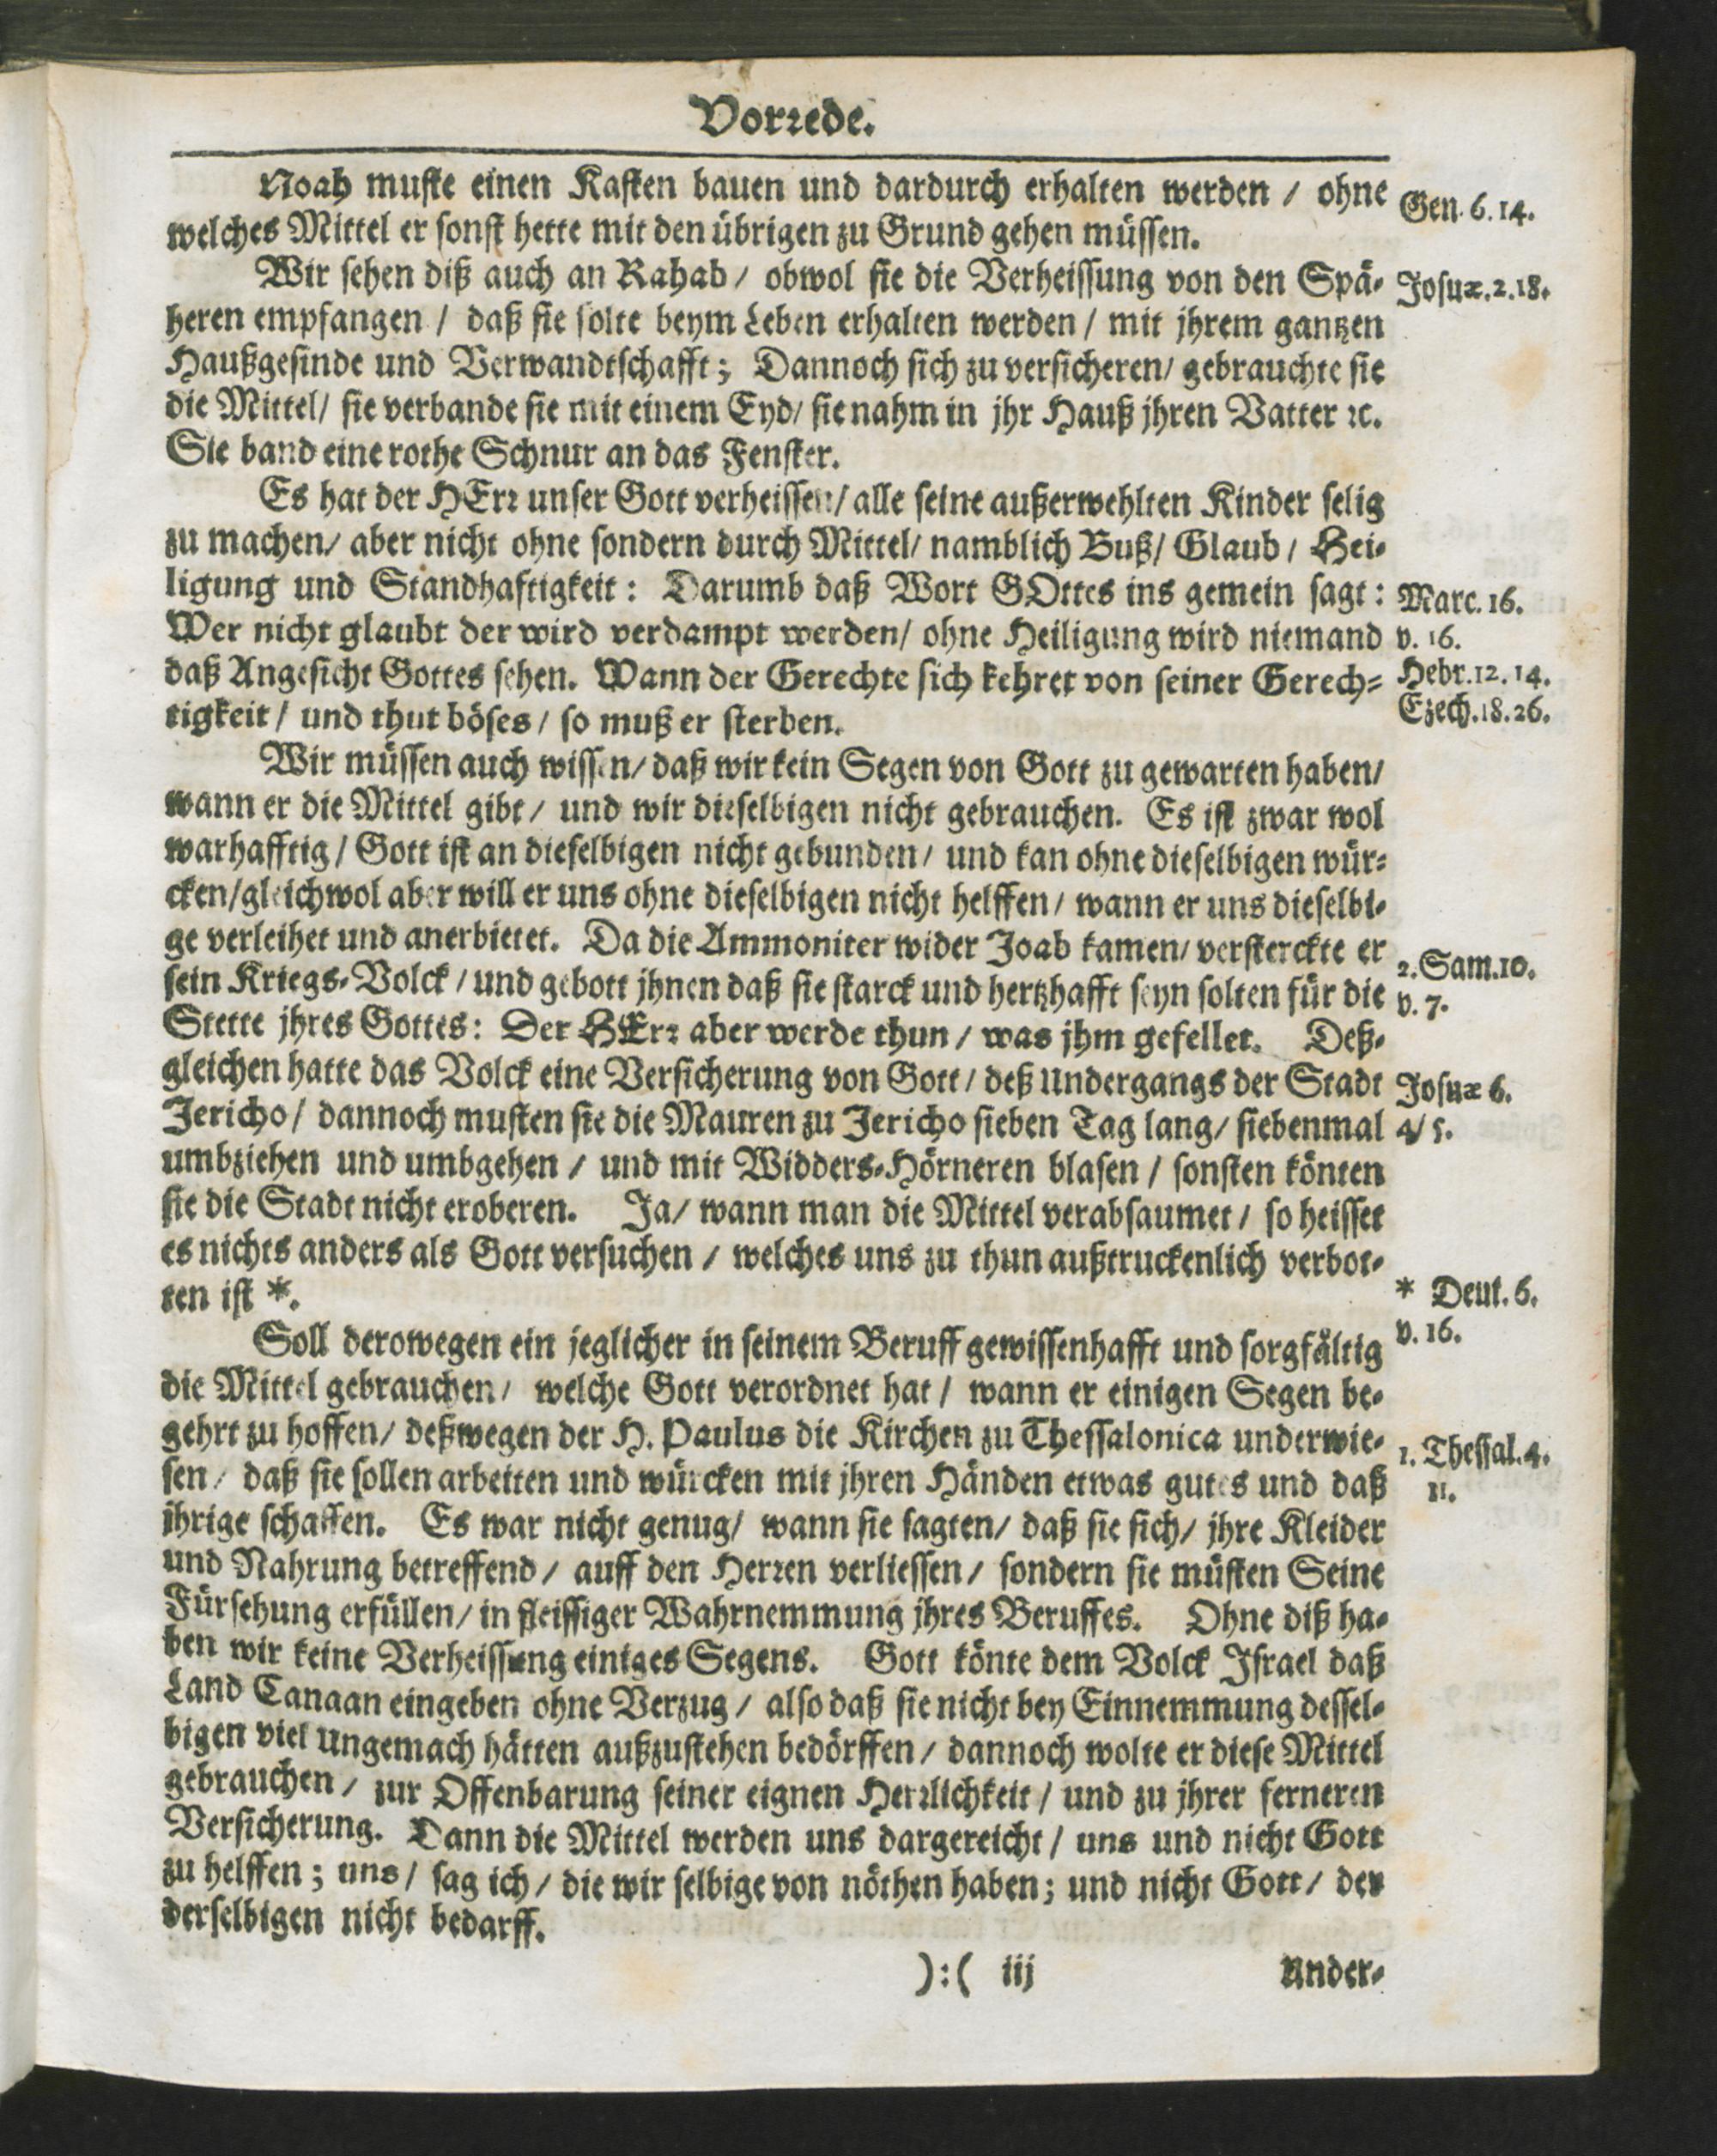 Vorrede.
Noah muste einen Kasten bauen und dardurch erhalten werden / ohne
Gen. 6. 14.
welches Mittel er sonst hette mit den übrigen zu Grund gehen müssen.
Wir sehen diß auch an Rahab / obwol sie die Verheissung von den Spä-
Josuæ. 2. 18.
heren empfangen / daß sie solte beym Leben erhalten werden / mit jhrem gantzen
Haußgesinde und Verwandtschafft; Dannoch sich zu versicheren / gebrauchte sie
die Mittel / sie verbande sie mit einem Eyd / sie nahm in jhr Hauß jhren Vatter ꝛc.
Sie band eine rothe Schnur an das Fenster.
Es hat der HErr unser Gott verheissen / alle seine außerwehlten Kinder selig
zu machen / aber nicht ohne sondern durch Mittel / namblich Buß / Glaub / Hei-
ligung und Standhaftigkeit: Darumb daß Wort GOttes ins gemein sagt:
Marc. 16.
Wer nicht glaubt der wird verdampt werden / ohne Heiligung wird niemand
v. 16.
daß Angesicht Gottes sehen. Wann der Gerechte sich kehret von seiner Gerech-
Hebr. 12. 14.
tigkeit / und thut böses / so muß er sterben.
Ezech. 18. 26.
Wir müssen auch wissen / daß wir kein Segen von Gott zu gewarten haben /
wann er die Mittel gibt / und wir dieselbigen nicht gebrauchen. Es ist zwar wol
warhafftig / Gott ist an dieselbigen nicht gebunden / und kan ohne dieselbigen wür-
cken / gleichwol aber will er uns ohne dieselbigen nicht helffen / wann er uns dieselbi-
ge verleihet und anerbietet. Da die Ammoniter wider Joab kamen / versterckte er
2. Sam. 10.
sein Kriegs-Volck / und gebott jhnen daß sie starck und hertzhafft seyn solten für die
v. 7.
Stette jhres Gottes: Der HErr aber werde thun / was jhm gefellet. Deß-
gleichen hatte das Volck eine Versicherung von Gott / deß Undergangs der Stadt
Josuæ 6.
Jericho / dannoch musten sie die Mauren zu Jericho sieben Tag lang / siebenmal
4 / 5.
umbziehen und umbgehen / und mit Widders-Hörneren blasen / sonsten könten
sie die Stadt nicht eroberen. Ja / wann man die Mittel verabsaumet / so heisset
es nichts anders als Gott versuchen / welches uns zu thun außtruckenlich verbot-
ten ist *.
* Deut. 6.
v. 16.
Soll derowegen ein jeglicher in seinem Beruff gewissenhafft und sorgfältig
die Mittel gebrauchen / welche Gott verordnet hat / wann er einigen Segen be-
gehrt zu hoffen / deßwegen der H. Paulus die Kirchen zu Thessalonica underwie-
1. Thessal. 4.
sen / daß sie sollen arbeiten und würcken mit jhren Händen etwas gutes und daß
11.
jhrige schaffen. Es war nicht genug / wann sie sagten / daß sie sich / jhre Kleider
und Nahrung betreffend / auff den Herren verliessen / sondern sie müsten Seine
Fürsehung erfüllen / in fleissiger Wahrnemmung jhres Beruffes. Ohne diß ha-
ben wir keine Verheissung einiges Segens. Gott könte dem Volck Israel daß
Land Canaan eingeben ohne Verzug / also daß sie nicht bey Einnemmung dessel-
bigen viel Ungemach hätten außzustehen bedörffen / dannoch wolte er diese Mittel
gebrauchen / zur Offenbarung seiner eignen Herrlichkeit / und zu jhrer ferneren
Versicherung. Dann die Mittel werden uns dargereicht / uns und nicht Gott
zu helffen; uns / sag ich / die wir selbige von nöthen haben; und nicht Gott / der
derselbigen nicht bedarff.
):( iij
Under-